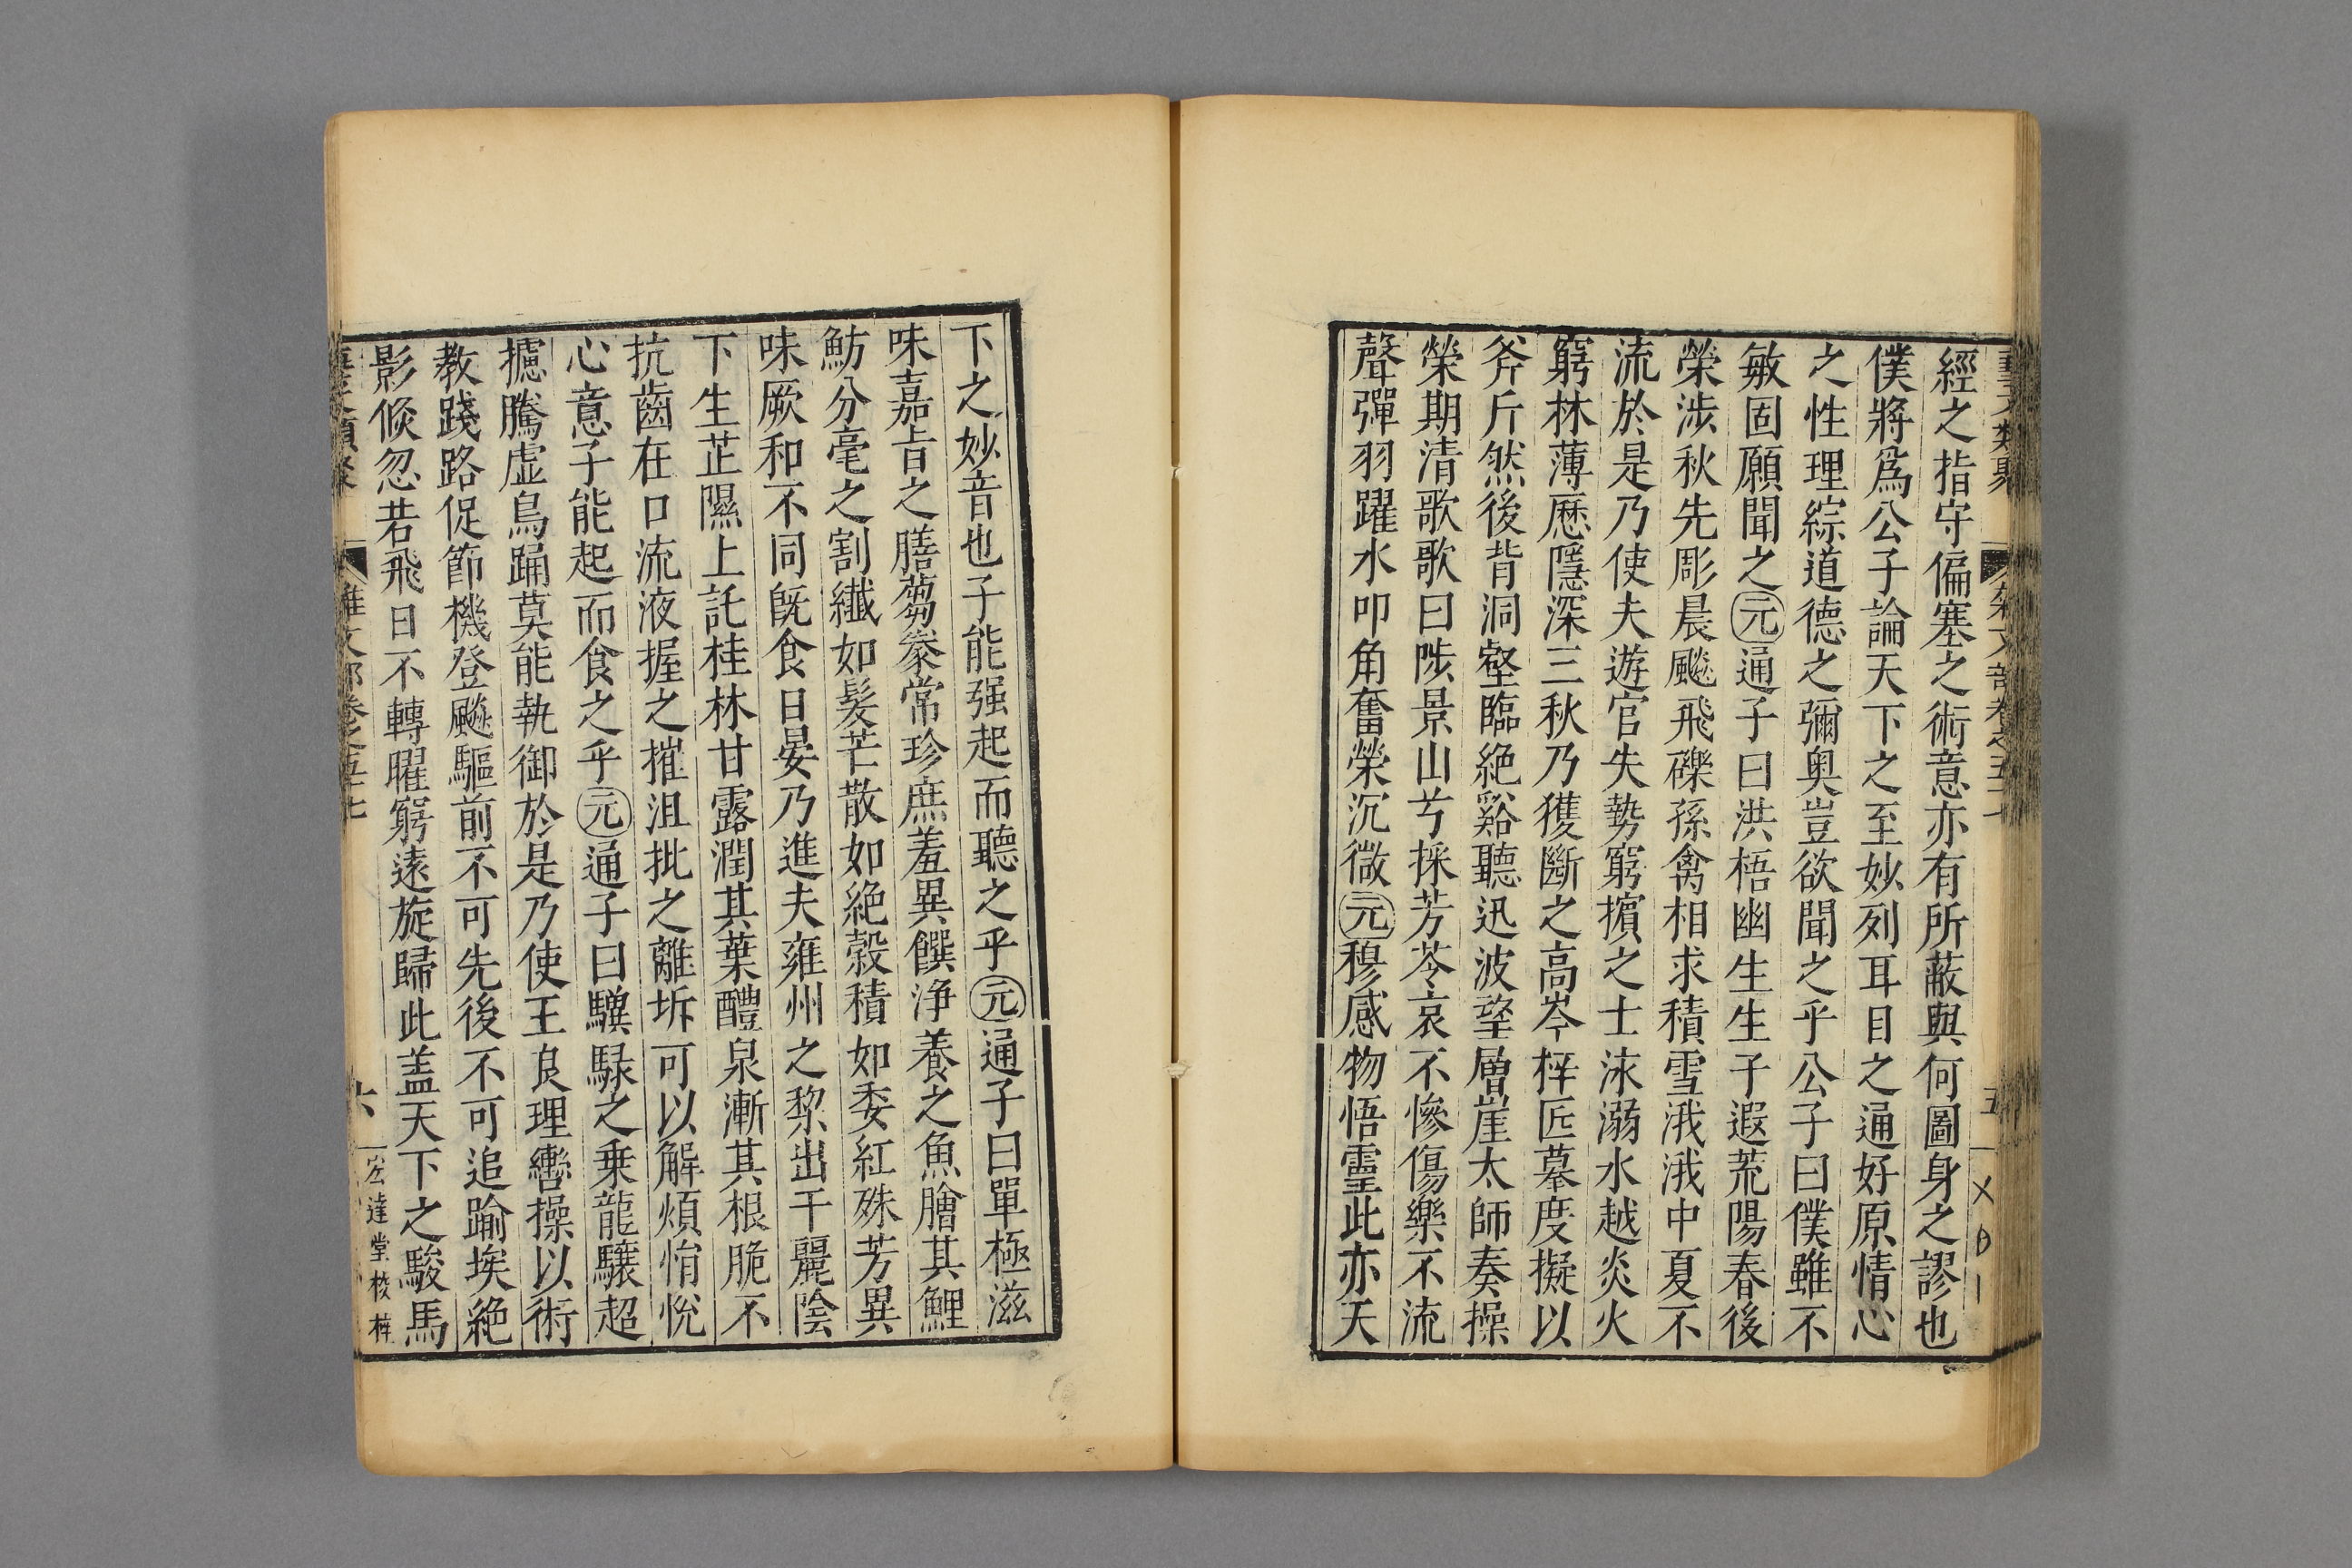 經之指守偏塞之術意亦有所蔽與何圖身之謬也
僕將爲公子論天下之至妙列耳目之通好原情心
之性理綜道德之彌奥豈欲聞之乎公子曰僕雖不
敏固願聞之元通子曰洪梧幽生生于遐荒陽春後
榮渉秋先彫晨飈飛礫孫禽相求積雪涐涐中夏不
流於是乃使夫遊官失勢窮擯之士泳溺水越炎火
窮林薄歴隱深三秋乃獲斷之高岑梓匠摹度擬以
斧斤然後背洞壑臨絶谿聽迅波望層崖太師奏操
榮期清歌歌曰陟景山兮採芳苓哀不慘傷樂不流
聲彈羽躍水叩角奮榮沉微元穆感物悟靈此亦天
下之妙音也子能强起而聽之乎元通子曰單極滋
味嘉旨之膳蒭豢常珍庶羞異饌浄養之魚膾其鯉
魴分毫之割纖如髮芒散如絶縠積如委紅殊芳異
味厥和不同旣食日晏乃進夫雍州之黎出于麗陰
下生芷隰上託桂林甘露潤其葉醴泉漸其根脆不
抗齒在口流液握之摧沮批之離坼可以解煩悁悅
心意子能起而食之乎元通子曰驥騄之乗龍驤超
攄騰虛鳥踊莫能執御於是乃使王良理轡操以術
教踐路促節機登飈驅前不可先後不可追踰埃絶
影倐忽若飛日不轉曜窮遠旋歸此盖天下之駿馬
雜文部卷之五十七
六
宏達堂校梓